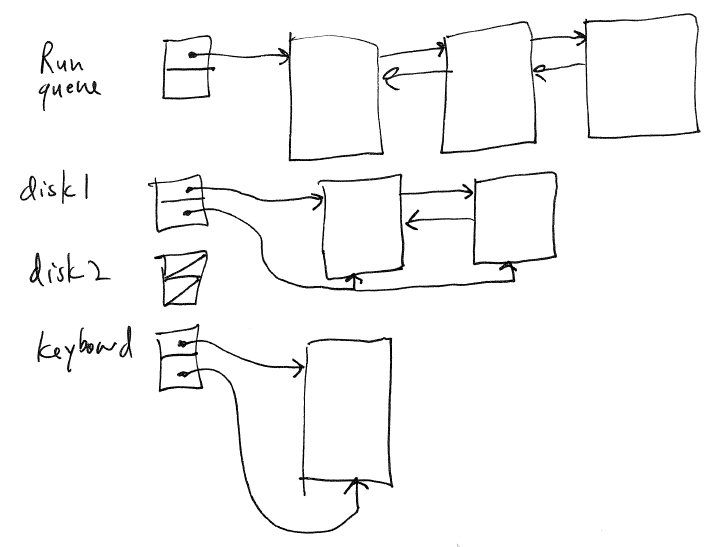 Run
queue
disk1
disk2
keyboard